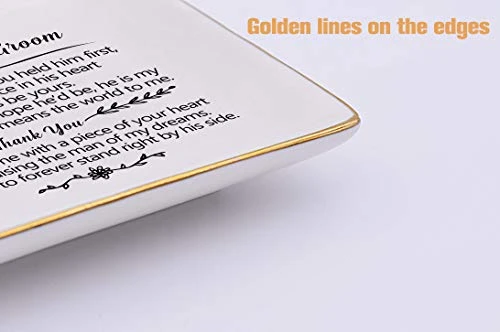 Golden lines on the edges
Groom
you held him first,
ce in his heart
s be yours.
hope he'd be, he is my
means the world to me.
Thank You
me with a piece of your heart
ising the man of my dreams,
to forever stand right by his side.